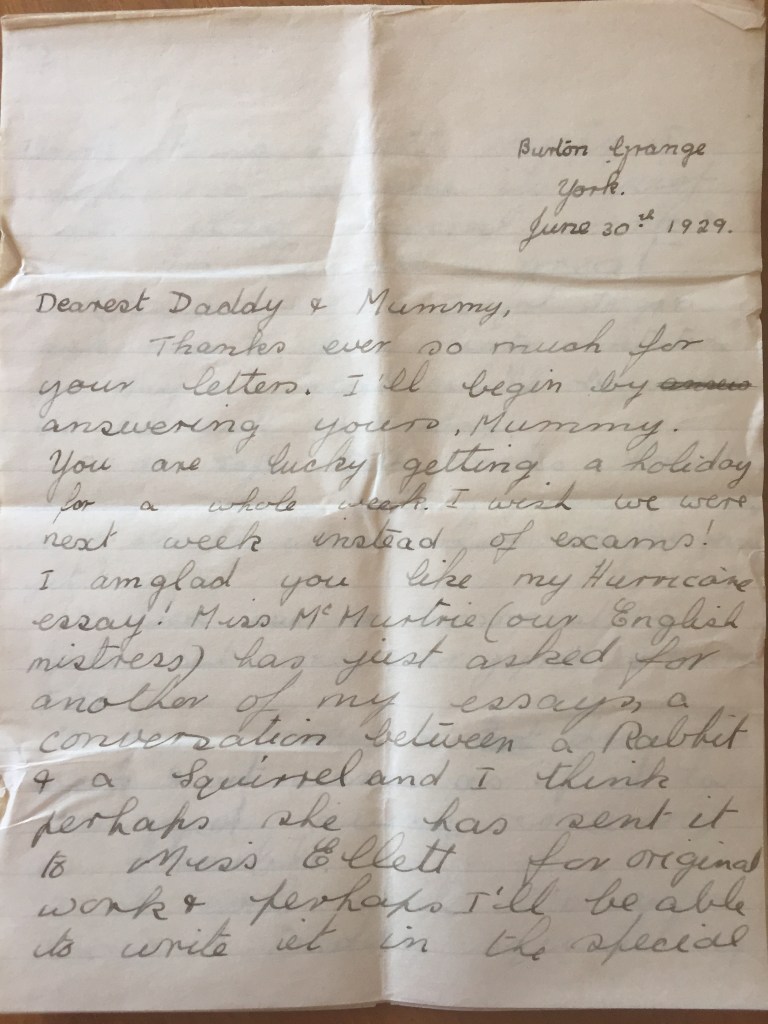 Burton Grange
York.
June 30th 1929.
Dearest Daddy & Mummy,
Thanks ever so much for
your letters. I'll begin by
answering yours, Mummy.
You are lucky getting a holiday
for a whole week. I wish we were
next week instead of exams!
I am glad you like my Hurricane
essay! Miss McMurtrie (our English
mistress) has just asked for
another of my essays, a
conversation between a Rabbit
& a Squirrel and I think
perhaps she has sent it
to Miss Ellett for original
work & perhaps I'll be able
to write it in the special